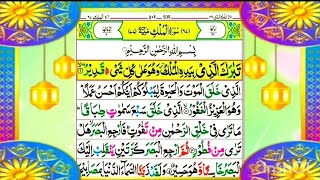 سُوْرَةُ الْمُلْكِ مَكِّيَّةٌ
بِسْمِ اللّٰهِ الرَّحْمٰنِ الرَّحِيْمِ
تَبٰرَكَ الَّذِيْ بِيَدِهِ الْمُلْكُ وَهُوَ عَلٰى كُلِّ شَيْءٍ قَدِيْرُ
الَّذِيْ خَلَقَ الْمَوْتَ وَالْحَيٰوةَ لِيَبْلُوَكُمْ اَيُّكُمْ اَحْسَنُ عَمَلًا
وَهُوَ الْعَزِيْزُ الْغَفُوْرُ الَّذِيْ خَلَقَ سَبْعَ سَمٰوٰتٍ طِبَاقًا
مَا تَرٰى فِيْ خَلْقِ الرَّحْمٰنِ مِنْ تَفٰوُتٍ فَارْجِعِ الْبَصَرَ هَلْ
تَرٰى مِنْ فُطُوْرٍ ثُمَّ ارْجِعِ الْبَصَرَ كَرَّتَيْنِ يَنْقَلِبْ اِلَيْكَ
الْبَصَرُ خَاسِئًا وَّهُوَ حَسِيْرٌ وَلَقَدْ زَيَّنَّا السَّمَآءَ الدُّنْيَا بِمَصَابِيْحَ